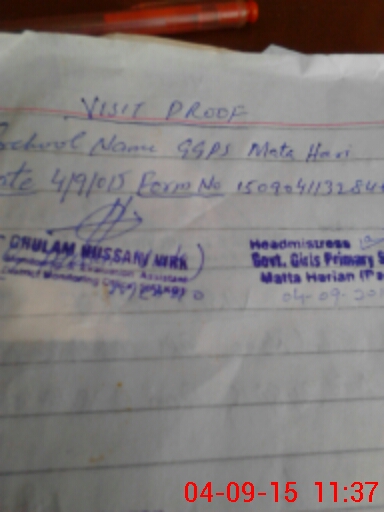 VISIT PROOF
School Name GGPS Mata Hari
Date 4/9/015 Form No
GHULAM HUSSAIN
Monitoring & Evaluation Assistant
District Monitoring
Headmistress
Govt. Girls Primary S
Matta Harian (Pa
04-09-20
04-09-15 11:37